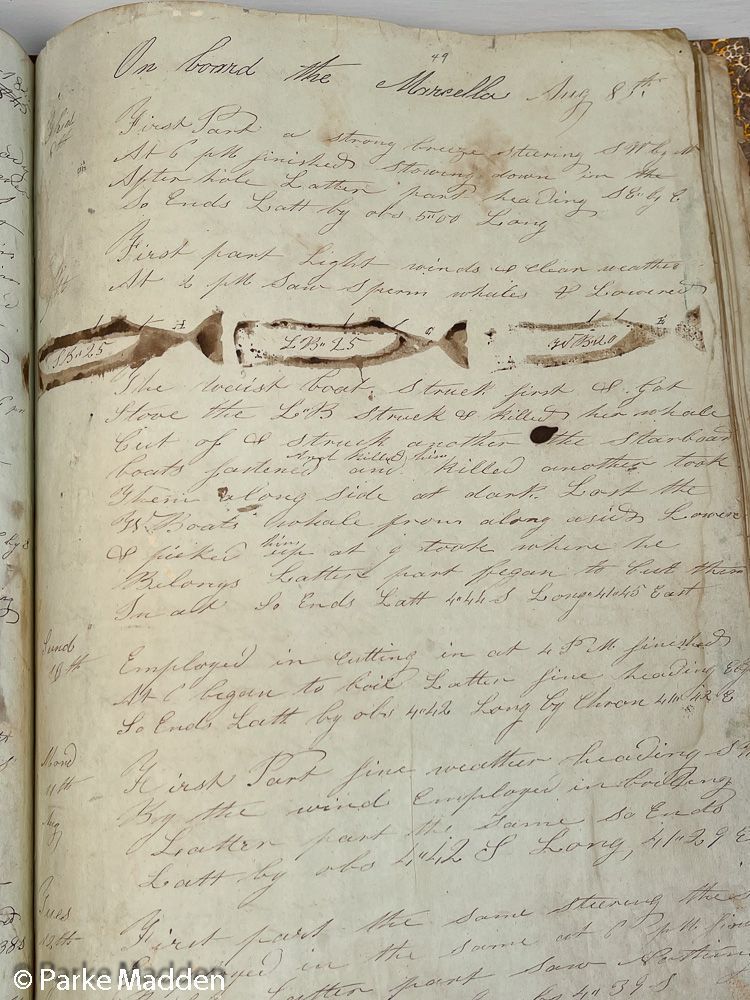 49
On board the Marcella Aug 8th
First Part a strong breeze steering SW by W
At 6 PM finished stowing down in the
After hole Latter part heading SE by E
So Ends Latt by obs 5"00 Long
First part Light winds & clear weather
At 2 PM Saw Sperm whales & Lowered
SB" 25
LB" 25
WB 20
The waist boat Struck first & got
Stove the L"B Struck & killed her whale
Cut of & Struck another the Starboard
boats fastened and killed another took
And killed him
Them along side at dark. Lost the
W. Boats whale from along aside Lowered
& picked him up at 9 took where he
Belongs Latter part began to cut them
In all So Ends Latt 4"44 S Long 41"45 East
Sund
10th
Employed in cutting in at 4 PM finished
At 6 began to boil Latter fine heading
So Ends Latt by obs 4"42 Long by Chron 41"42 E
Mond
11th
Aug
First Part fine weather heading
By the wind Employed in boiling
Latter part the Same So Ends
Latt by obs 4"42 S Long 41"29 E
Tues
12th
First part the Same steering the
Employed in the same at 6 PM
Latter part saw
by 4"39 S
© Parke Madden